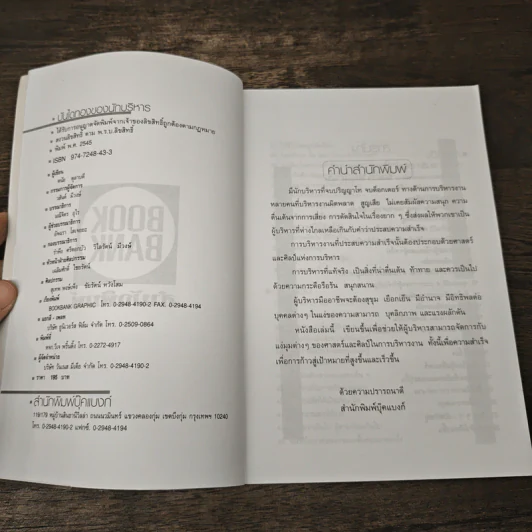 บันไดทองของนักบริหาร
• ได้รับการอนุญาตจัดพิมพ์จากเจ้าของลิขสิทธิ์ถูกต้องตามกฎหมาย
• สงวนลิขสิทธิ์ ตาม พ.ร.บ.ลิขสิทธิ์
• พิมพ์ พ.ศ. 2545
• ISBN 974-7248-43-3
• ผู้เขียน
• กรรมการผู้จัดการ
• บรรณาธิการ
• ผู้ช่วยบรรณาธิการ
• กองบรรณาธิการ
วิไลรัตน์ มีวงษ์
• หัวหน้าฝ่ายศิลปกรรม
เฉลิมศักดิ์ ไชยรัตน์
• ศิลปกรรม
ชัยรัตน์ หวังโสม
• เรียงพิมพ์
BOOKBANK GRAPHIC โทร. 0-2948-4190-2 FAX. 0-2948-4194
• แยกสี - เพลท
โทร. 0-2509-0864
• พิมพ์ที่
โทร. 0-2272-4917
• ผู้จัดจำหน่าย
จำกัด โทร. 0-2948-4190-2
• ราคา 165 บาท
• สำนักพิมพ์บุ๊คแบงก์
ถนนนวมินทร์ แขวงคลองกุ่ม เขตบึงกุ่ม กรุงเทพฯ 10240
โทร. 0-2948-4190-2 แฟกซ์. 0-2948-4194
BOOK
BANK
คำนำสำนักพิมพ์
มีนักบริหารที่จบปริญญาโท จบด็อกเตอร์ ทางด้านการบริหารงาน
หลายคนที่บริหารงานผิดพลาด สูญเสีย ไม่เคยสัมผัสความสนุก ความ
ตื่นเต้นจากการเสี่ยง การตัดสินใจในเรื่องยาก ๆ ซึ่งส่งผลให้พวกเขาเป็น
ผู้บริหารที่ห่างไกลเหลือเกินกับคำว่าประสบความสำเร็จ
การบริหารงานที่ประสบความสำเร็จนั้นต้องประกอบด้วยศาสตร์
และศิลป์แห่งการบริหาร
การบริหารที่แท้จริง เป็นสิ่งที่น่าตื่นเต้น ท้าทาย และควรเป็นไป
ด้วยความกระตือรือร้น สนุกสนาน
ผู้บริหารมืออาชีพจะต้องสุขุม เยือกเย็น มีอำนาจ มีอิทธิพลต่อ
บุคคลต่างๆ ในแง่ของความสามารถ บุคลิกภาพ และแรงผลักดัน
หนังสือเล่มนี้ เขียนขึ้นเพื่อช่วยให้ผู้บริหารสามารถจัดการกับ
แง่มุมต่างๆ ของศาสตร์และศิลป์ในการบริหารงาน ทั้งนี้เพื่อความสำเร็จ
เพื่อการก้าวสู่เป้าหมายที่สูงขึ้นและเร็วขึ้น
ด้วยความปรารถนาดี
สำนักพิมพ์บุ๊คแบงก์